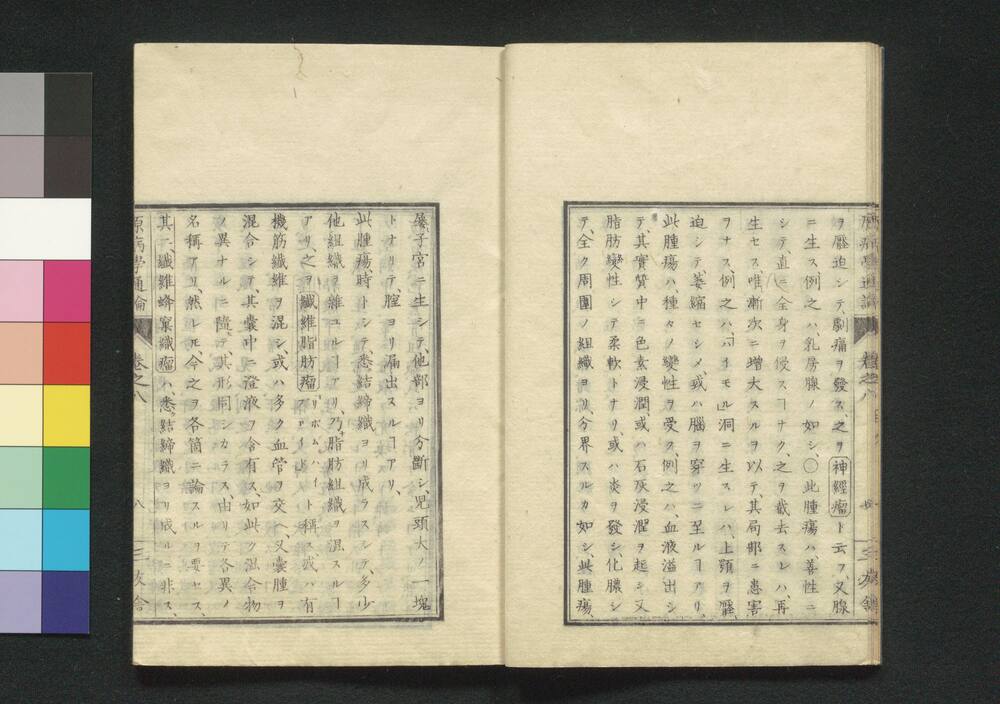 ヲ壓迫シテ、劇痛ヲ發ス、之ヲ神經瘤ト云フ、又腺
ニ生ス、例之ハ、乳房腺ノ如シ、〇此腫瘍ハ、善性ニ
シテ、直ニ全身ヲ侵スヿナク、之ヲ截去スレハ、再
生セス、唯漸次ニ增大スルヲ以テ、其局部ニ患害
ヲナス、例之ハ、「ハイモル」洞ニ生スレハ、上顎ヲ壓
迫シテ、萎縮セシメ、或ハ腦ヲ穿ツニ至ルヿアリ、
此腫瘍ハ、種々ノ變性ヲ受ク、例之ハ、血液溢出シ
テ、其實質中ニ色素浸潤、或ハ石灰浸潤ヲ起シ、又
脂肪變性シテ、柔軟トナリ、或ハ炎ヲ發シ、化膿シ
テ、全ク周圍ノ組織ヨリ、分界スルカ如シ、此腫瘍、
屢子宮ニ生シテ、他部ヨリ分斷シ、兒頭大ノ一塊
トナリテ、腟ヨリ漏出スルヿアリ、
此腫瘍時トシテ、悉結締織ヨリ成ラスシテ、多少
他組織ヲ雜ユルヿアリ、乃脂肪組織ヲ混スルヿ
アリ、之ヲ纖維脂肪瘤ト稱ス、或ハ有
機筋纖維ヲ混シ、或ハ多ク血管ヲ交ヘ、又囊腫ヲ
混合シテ、其囊中ニ澄液ヲ含有ス、如此ク混合物
ノ異ナルニ隨テ、其形同シカラス、由リテ各異ノ
名稱アリ、然レ𪜈、今之ヲ各箇ニ論スルヲ要セス、
其一纖維蜂窠織瘤ハ、悉ク結締織ヨリ成ルニ非ス、
原病學通論
卷之八
八
三友舍